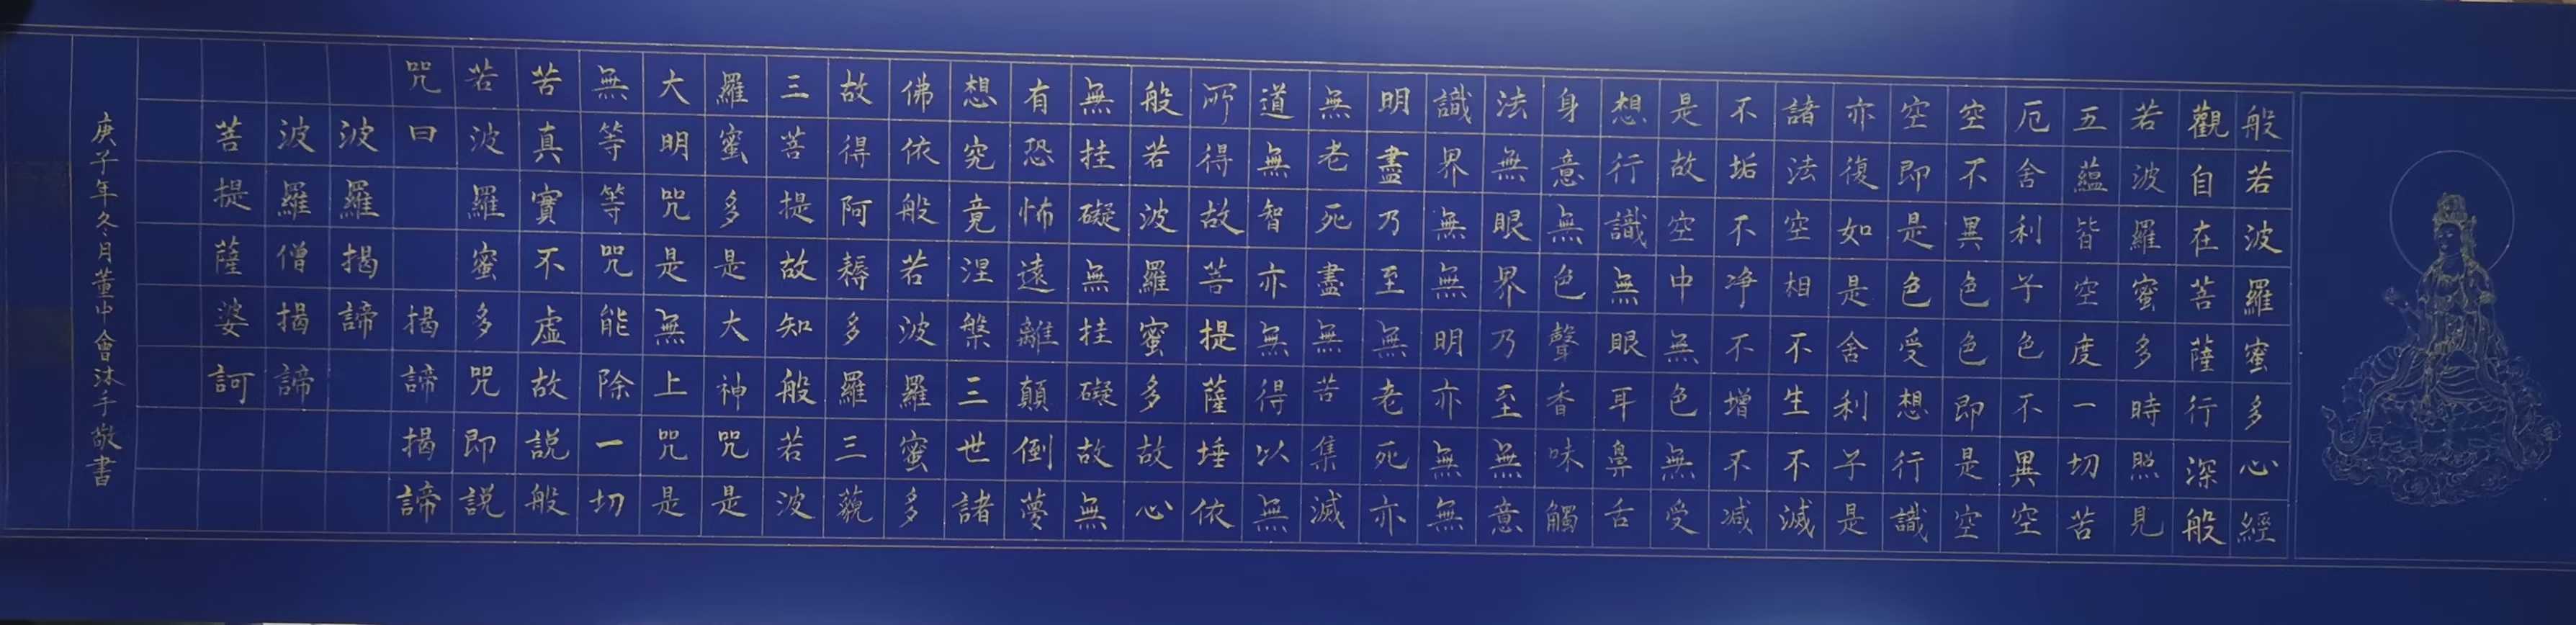 般若波羅蜜多心經
觀自在菩薩行深般
若波羅蜜多時照見
五蘊皆空度一切苦
厄舍利子色不異空
空不異色色即是空
空即是色受想行識
亦復如是舍利子是
諸法空相不生不滅
不垢不净不增不减
是故空中無色無受
想行識無眼耳鼻舌
身意無色聲香味觸
法無眼界乃至無意
識界無無明亦無無
明盡乃至無老死亦
無老死盡無苦集滅
道無智亦無得以無
所得故菩提薩埵依
般若波羅蜜多故心
無挂礙無挂礙故無
有恐怖遠離顛倒夢
想究竟涅槃三世諸
佛依般若波羅蜜多
故得阿耨多羅三藐
三菩提故知般若波
羅蜜多是大神咒是
大明咒是無上咒是
無等等咒能除一切
苦真實不虛故說般
若波羅蜜多咒即說
咒曰揭諦揭諦
波羅揭諦
波羅僧揭諦
菩提薩婆訶
庚子年冬月董中會沐手敬書